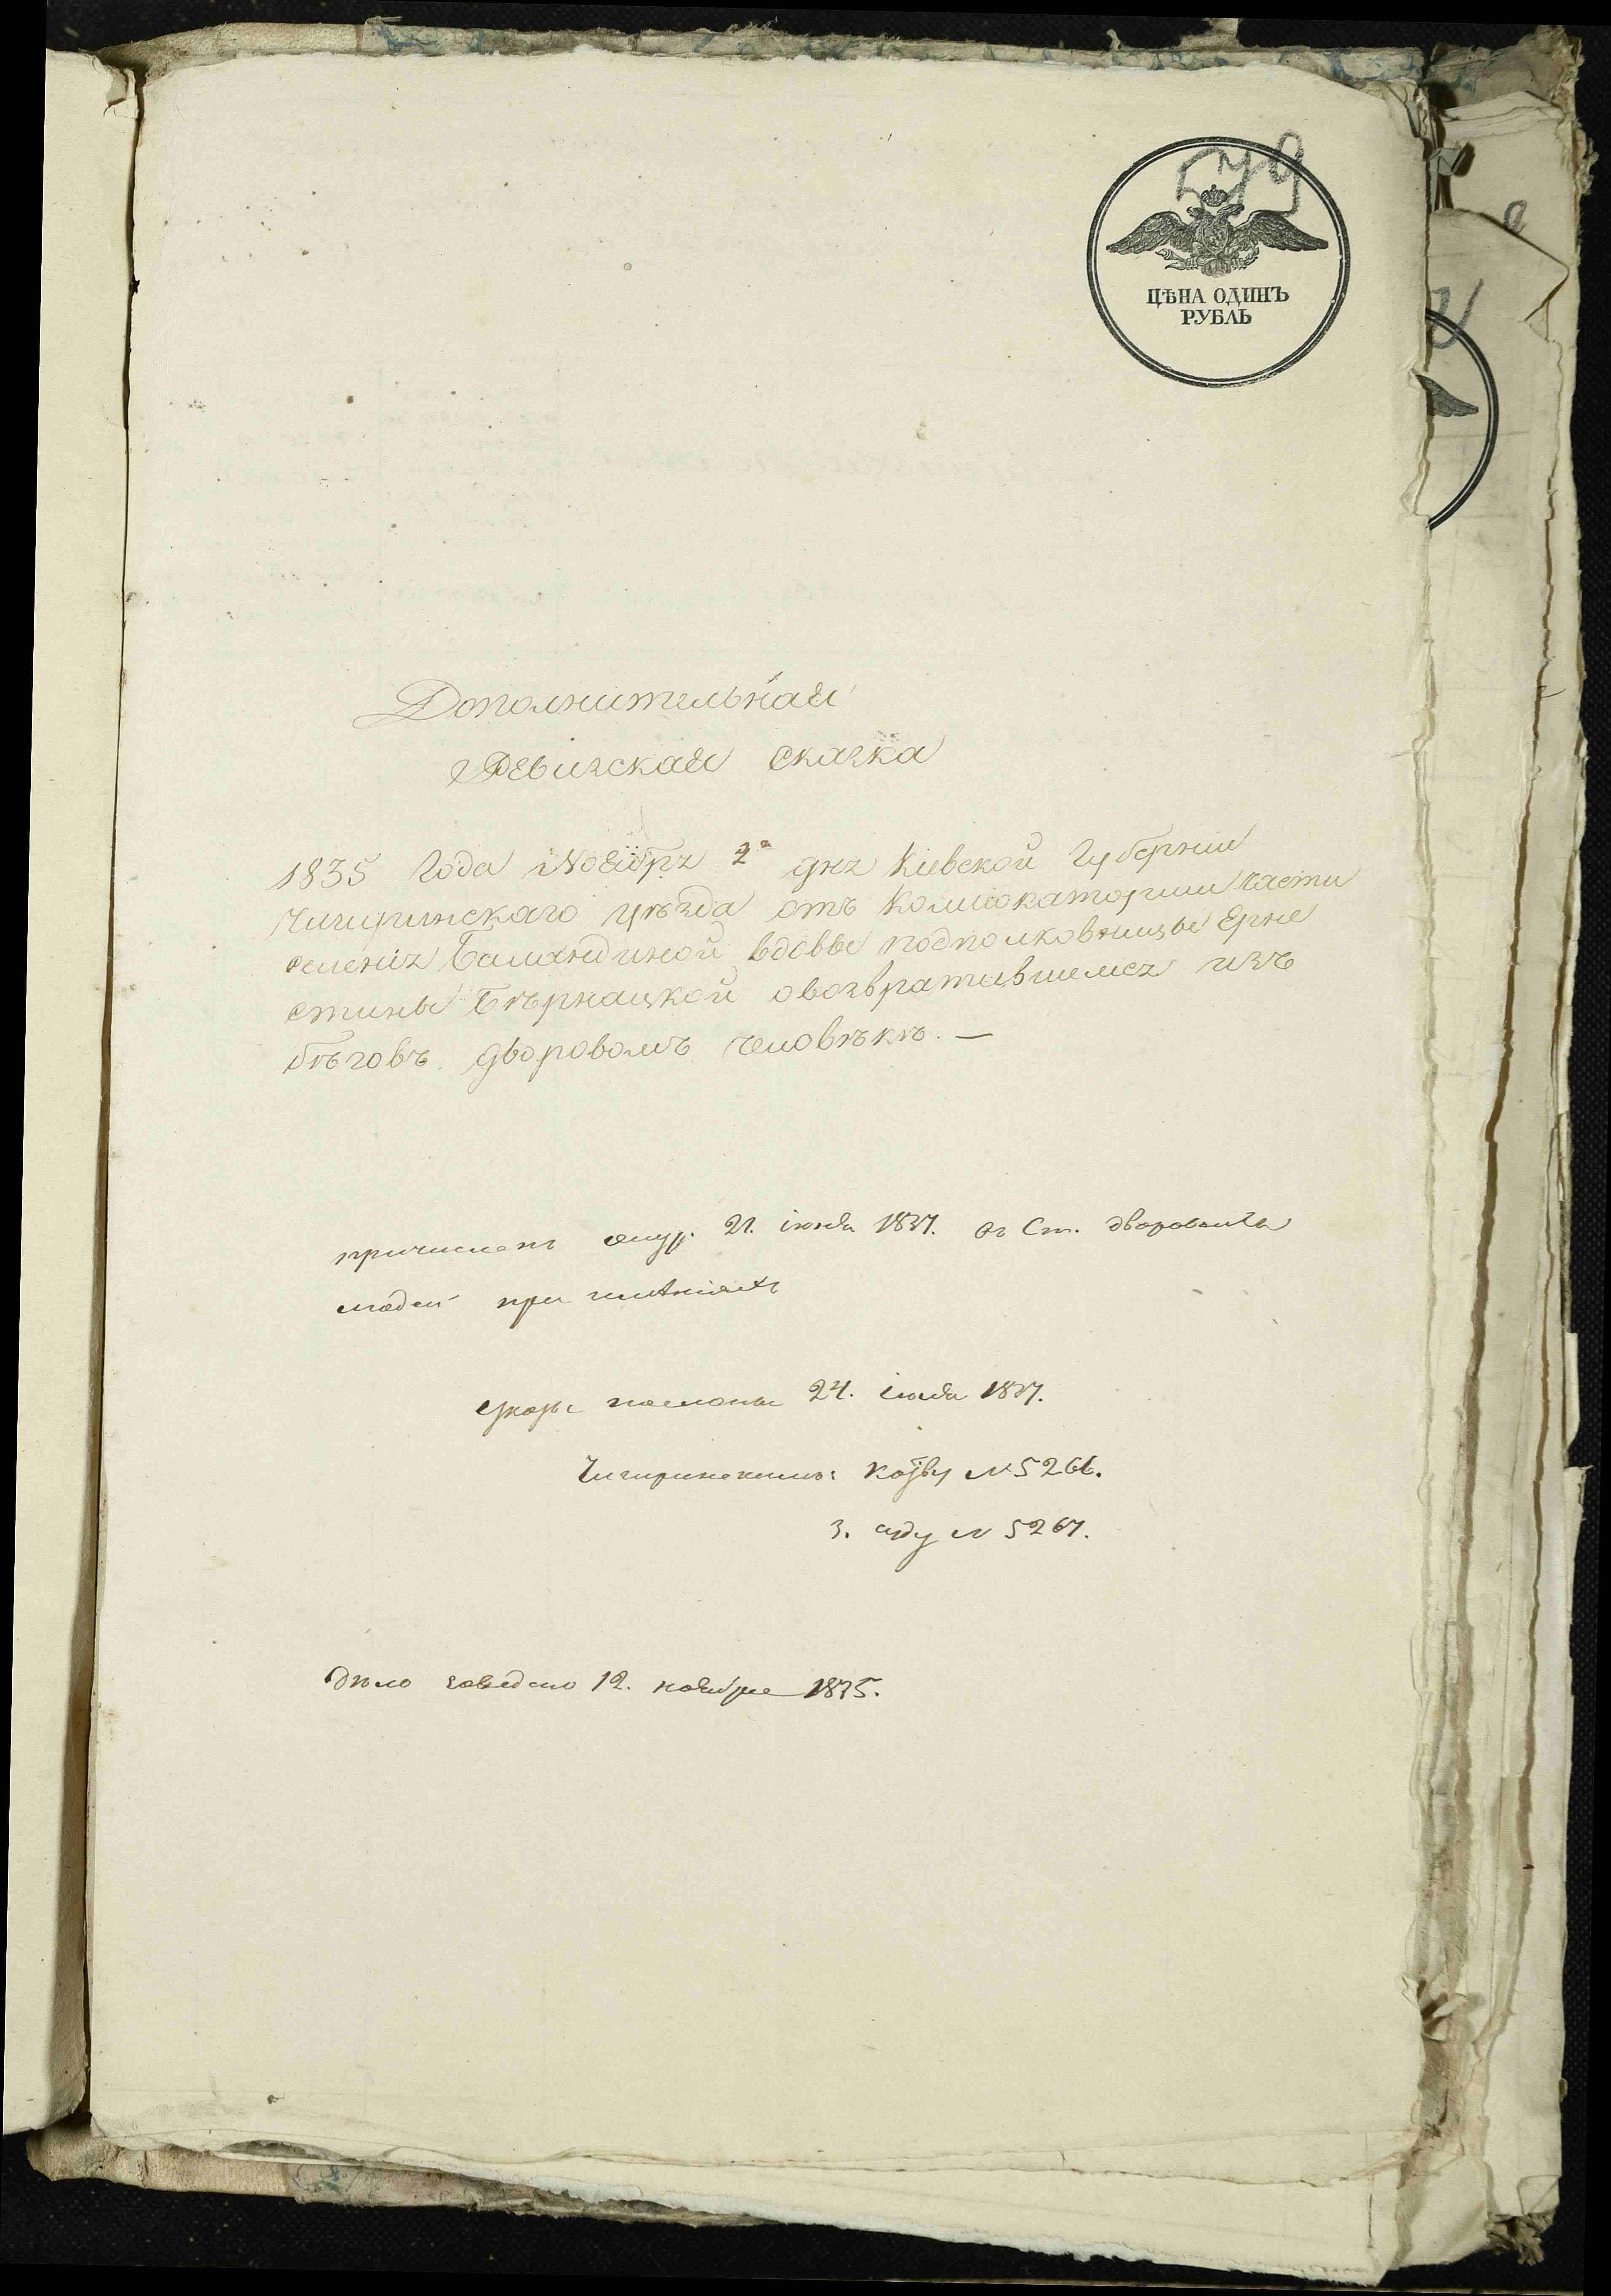 549
ЦѢНА ОДИНЪ
РУБЛЬ
Дополнительная
Ревизская Сказка
1835 Года Ноября 2го дня Киевской Губернии
Чигиринскаго уѣзда отъ Коллокаторши части
селенія Баландиной вдовы подполковницы Ерне
стины Бѣрнацкой овозвратившемся изъ
бѣговъ дворовомъ человѣкѣ. —
причисленъ 21. іюня 1837. въ Ст. дворовыхъ
людей при имѣніяхъ
Указы посланы 24. іюля 1837.
Чигиринскимъ: Кѣзву № 5266.
З. суду № 5267.
Дѣло заведено 12. ноября 1835.